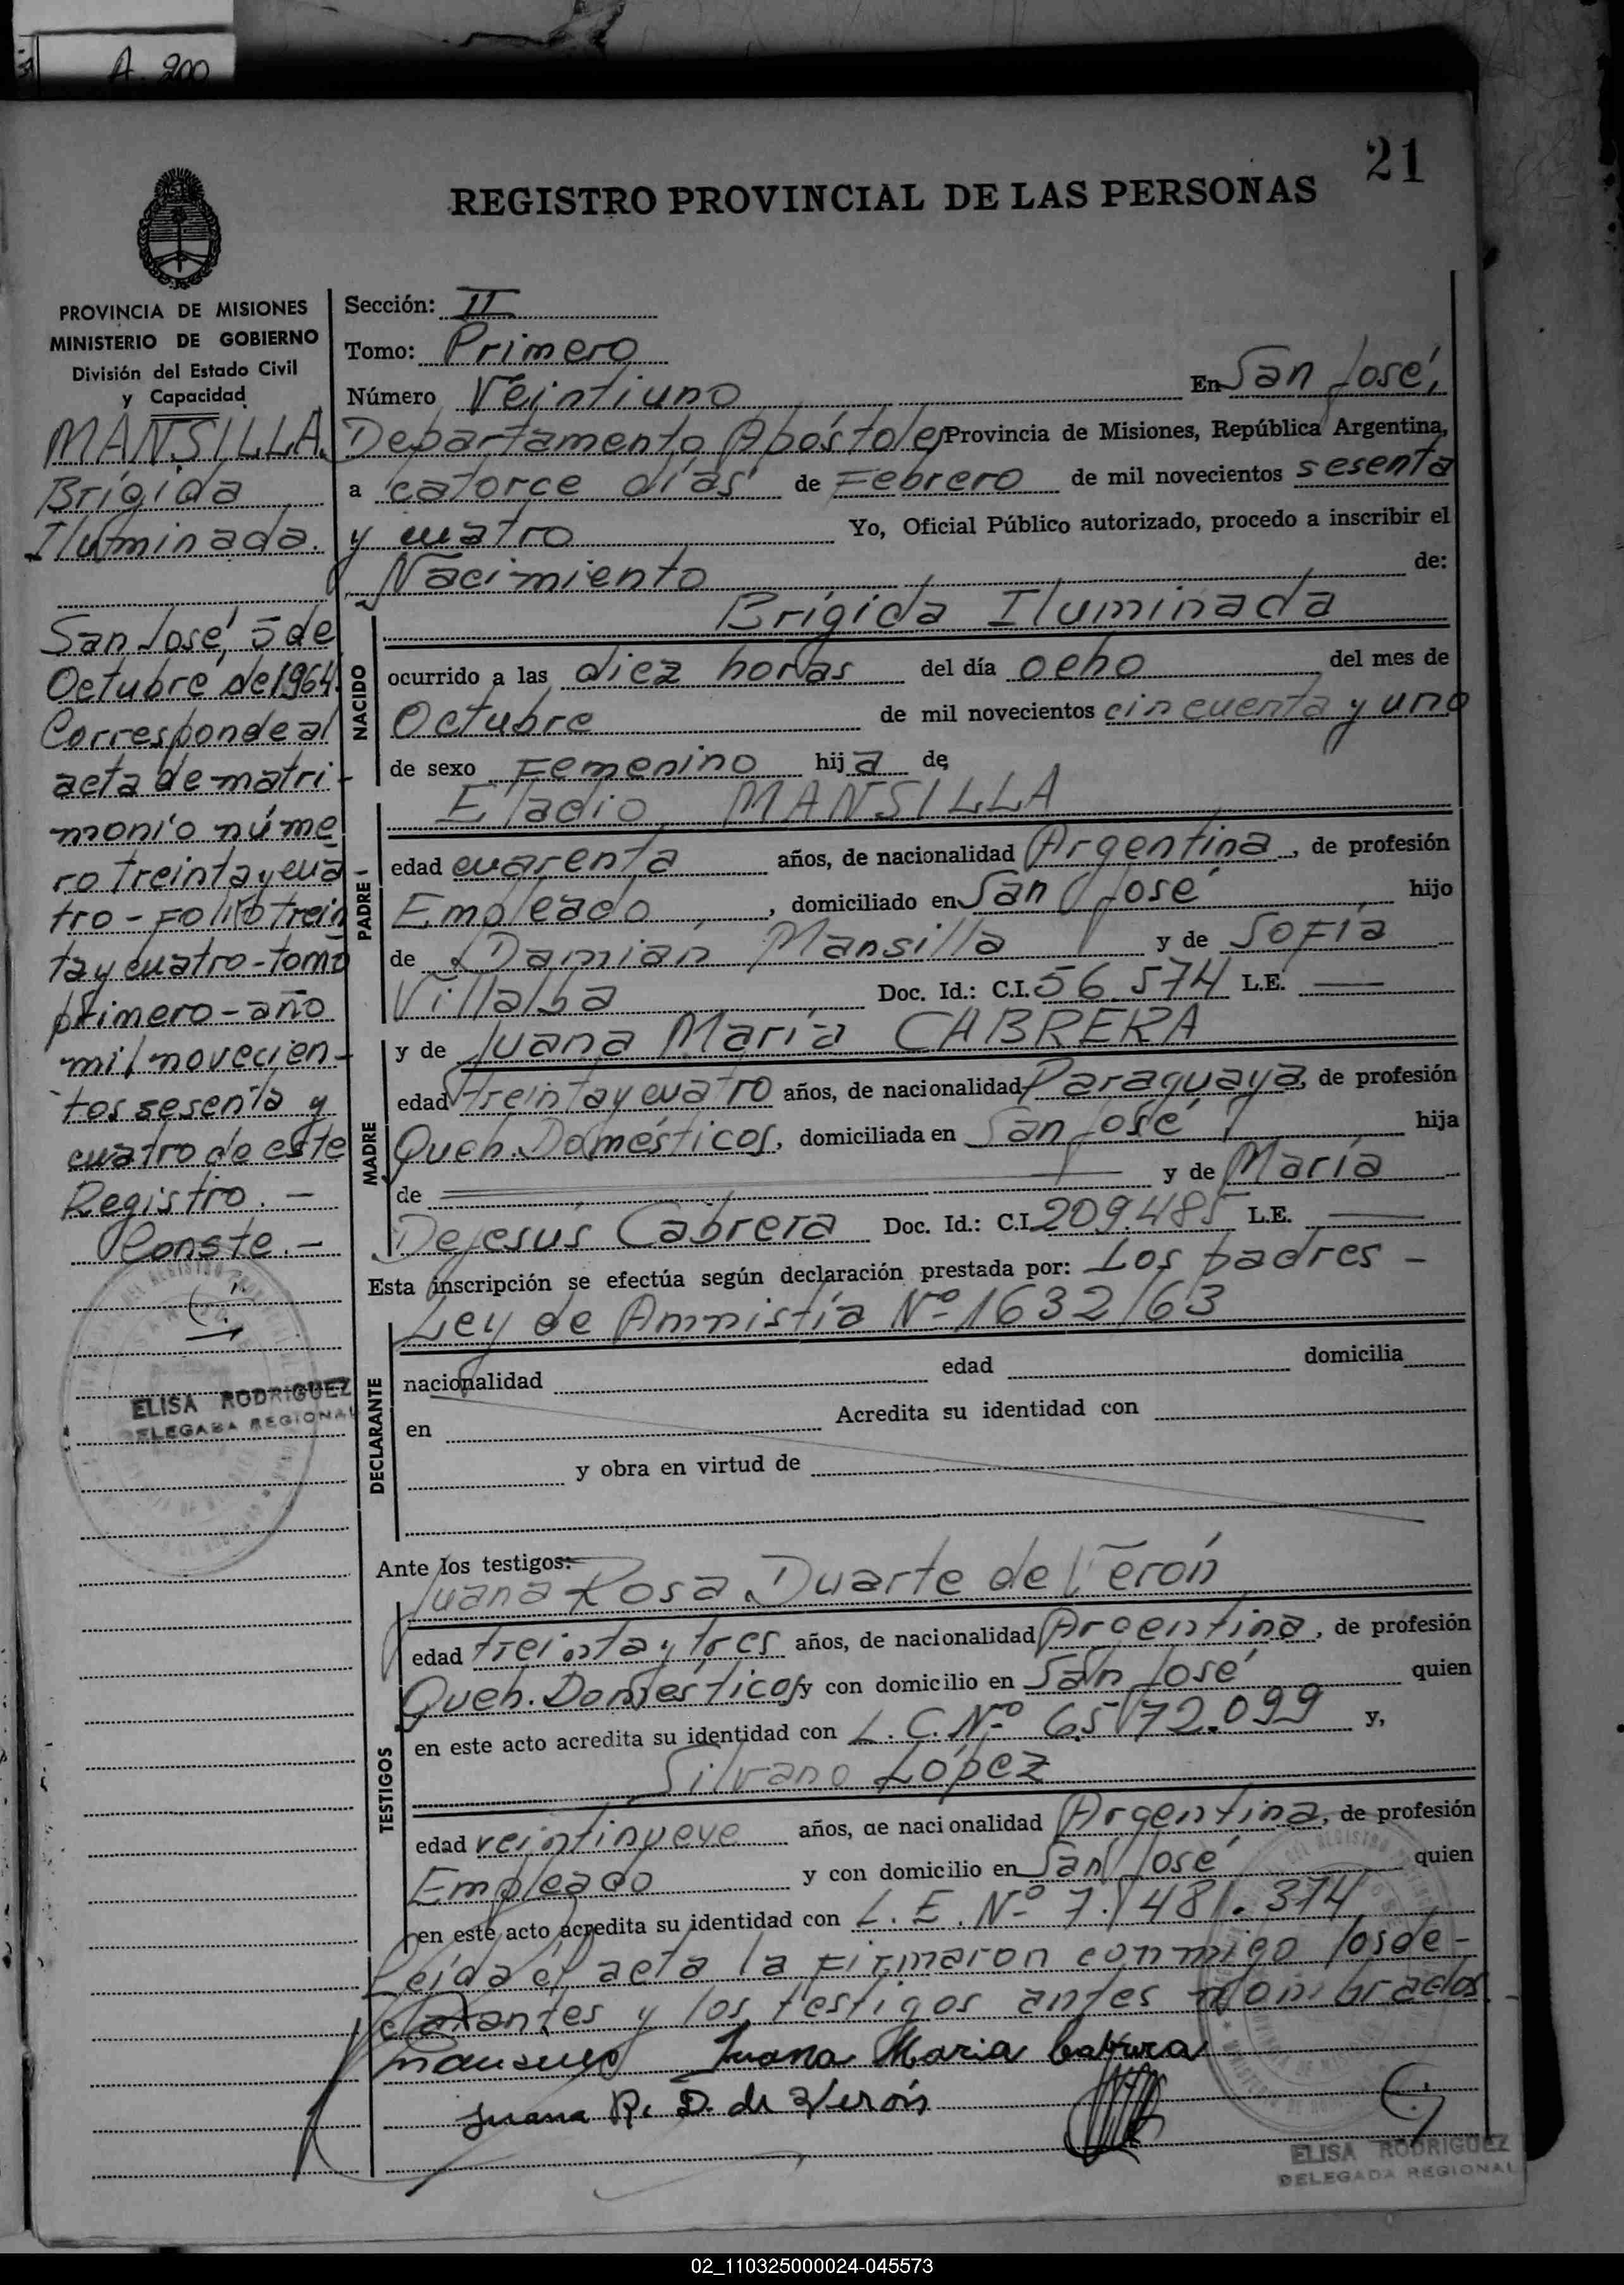 A. 200
21
REGISTRO PROVINCIAL DE LAS PERSONAS
PROVINCIA DE MISIONES
MINISTERIO DE GOBIERNO
División del Estado Civil
y Capacidad
MANSILLA.
Brígida
Iluminada.
San José, 5 de
Octubre de 1964.
Corresponde al
acta de matri-
monio núme
ro treinta y cua-
tro - Folio trein
ta y cuatro - tomo
primero - año
mil novecien-
tos sesenta y
cuatro de este
Registro. -
Conste. -
ELISA RODRIGUEZ
DELEGADA REGIONAL
Sección: II
Tomo: Primero
Número Veintiuno En San José,
Departamento Apóstoles Provincia de Misiones, República Argentina,
a catorce días de Febrero de mil novecientos sesenta
y cuatro Yo, Oficial Público autorizado, procedo a inscribir el
Nacimiento de:
NACIDO
Brígida Iluminada
ocurrido a las diez horas del día ocho del mes de
Octubre de mil novecientos cincuenta y uno
de sexo Femenino hija de
PADRE
Eladio MANSILLA
edad cuarenta años, de nacionalidad Argentina, de profesión
Empleado, domiciliado en San José hijo
de Damián Mansilla y de Sofía
Villalba Doc. Id.: C.I. 56.574 L.E. —
MADRE
y de Juana María CABRERA
edad treinta y cuatro años, de nacionalidad Paraguaya, de profesión
Queh. Domésticos, domiciliada en San José hija
de — y de María
De Jesús Cabrera Doc. Id.: C.I. 209.485 L.E. —
Esta inscripción se efectúa según declaración prestada por: Los padres -
Ley de Amnistía Nº 1632/63
DECLARANTE
nacionalidad edad domicilia
en Acredita su identidad con
y obra en virtud de
Ante los testigos:
Juana Rosa Duarte de Verón
TESTIGOS
edad treinta y tres años, de nacionalidad Argentina, de profesión
Queh. Domésticos y con domicilio en San José quien
en este acto acredita su identidad con L.C. Nº 6.572.099 y,
Silvano López
edad veintinueve años, de nacionalidad Argentina, de profesión
Empleado y con domicilio en San José quien
en este acto acredita su identidad con L.E. Nº 7.481.374
Leída el acta la firmaron conmigo los de-
clarantes y los testigos antes nombrados.
Juana Maria Cabrera
Juana R. D. de Verón
ELISA RODRIGUEZ
DELEGADA REGIONAL
02_110325000024-045573